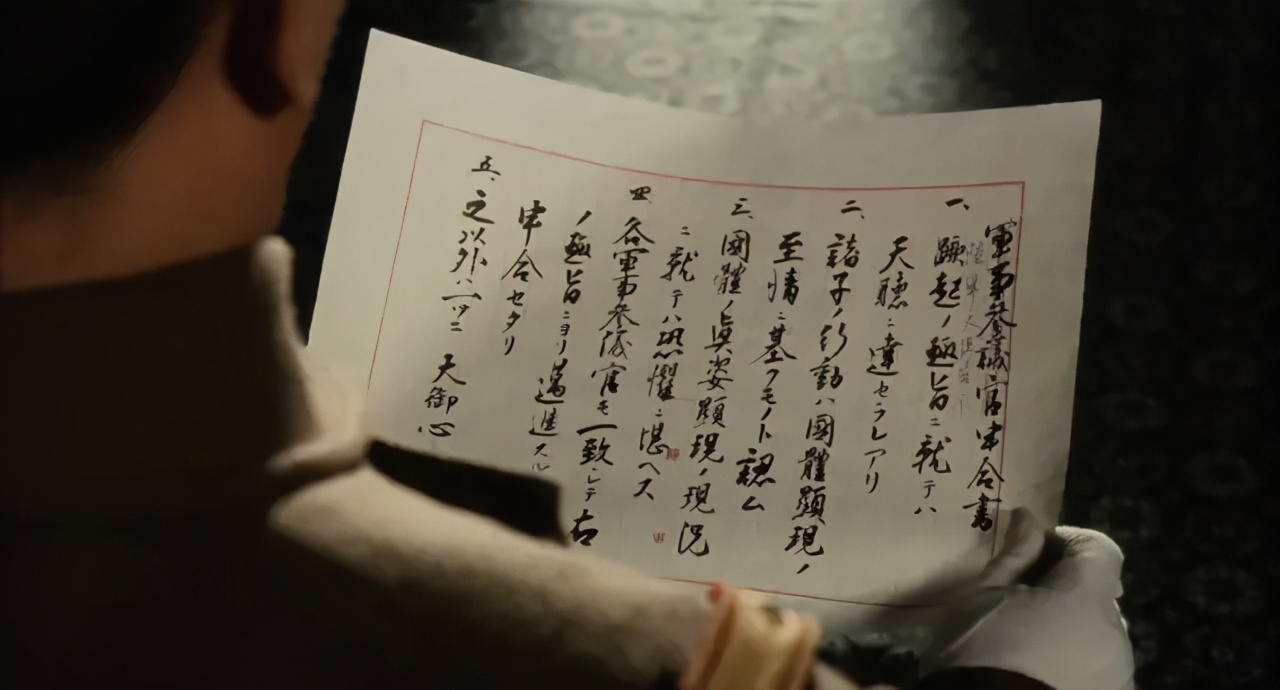 軍事參議官申合書
一、蹶起ノ趣旨ニ就テハ
天聽ニ達セラレアリ
二、諸子ノ行動ハ國體顯現ノ
至情ニ基クモノト認ム
三、國體ノ眞姿顯現ノ現況
ニ就テハ恐懼ニ堪ヘス
四、各軍事參議官モ一致シテ右
ノ趣旨ニヨリ邁進スル
申合セタリ
五、之以外ハ一ツニ 天御心